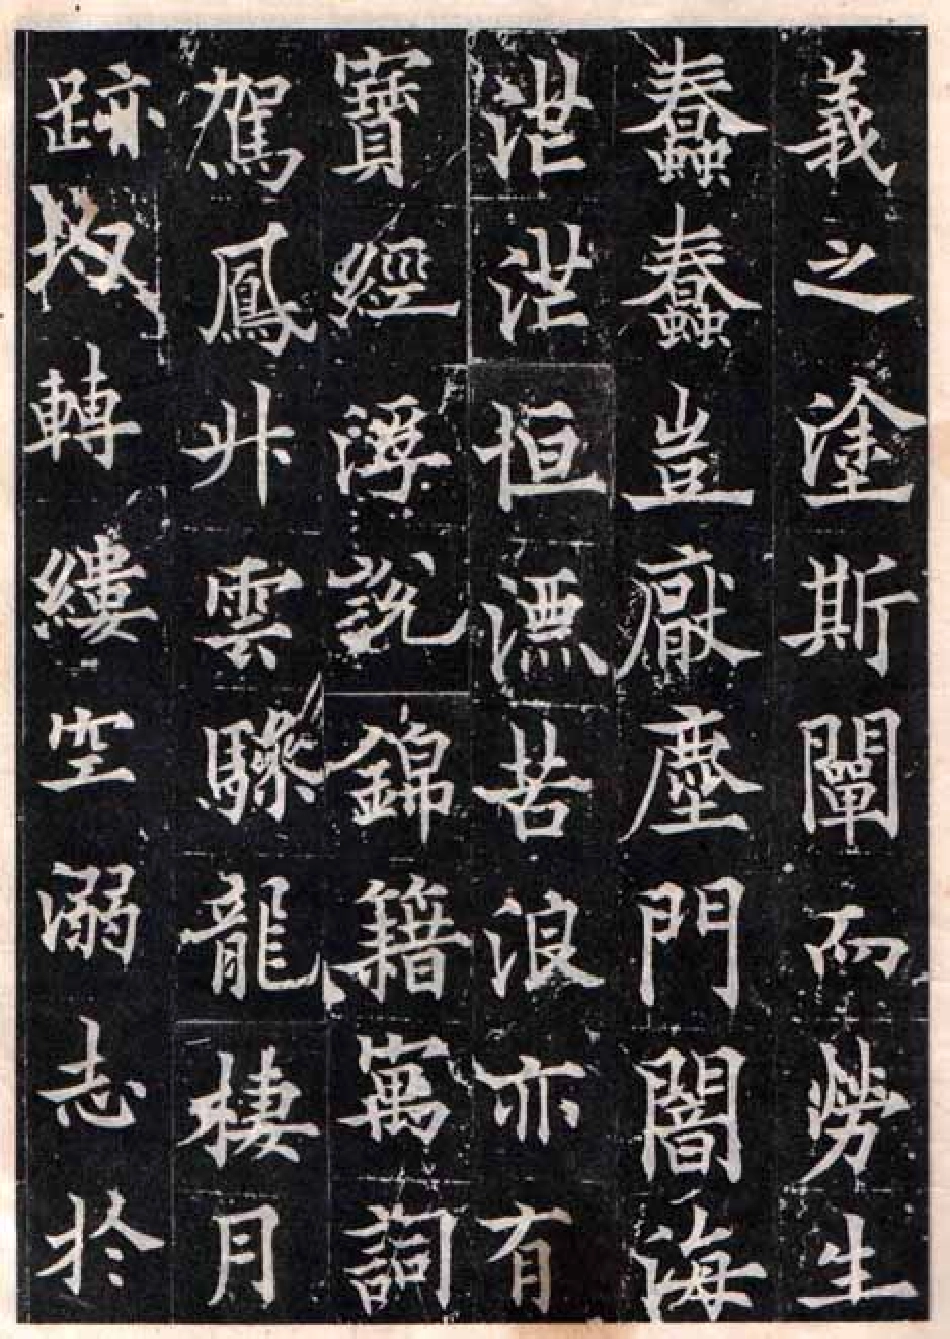 義之塗斯闡而勞生
蠢蠢豈厭塵門闇海
茫茫恒漂苦浪亦有
寶經浮說錦籍寓詞
駕鳳升雲驂龍棲月
跡轉縷空溺志於